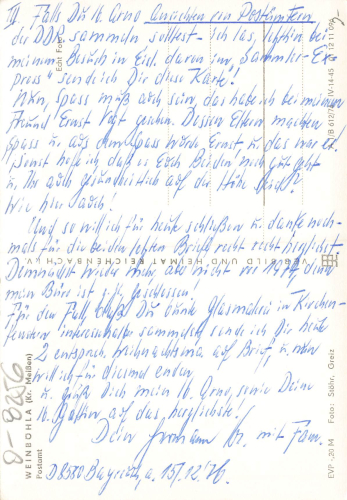 III Falls Du lb. Arno Ansichten von Postämtern
der DDR sammeln solltest - ich las, letzthin bei
meinem Besuch in Eisl. davon im "Sammler-Ex-
press" sende ich Dir diese Karte!
Nun, Spass muß auch sein, das habe ich bei meinem
Freund Ernst Vogt gesehen. Dessen Eltern machten
Spass u. aus dem Spass wurde Ernst u. das war er!
Sonst hoffe ich, daß es Euch Beiden noch gut geht
u. Ihr auch gesundheitlich auf der Höhe seid?
Wie hier auch!
Und so will ich für heute schließen u. danke noch-
mals für die beiden letzten Briefe recht recht herzlichst!
Demnächst wieder mehr, aber nicht vor 1977 denn
mein Büro ist geschlossen!
Für den Fall, daß Du Glasmalerei in Kirchen-
fenstern interessehalber sammelst, sende ich Dir heute
2 entsprech. Weihnachtsma. auf Brief, u. nun
will ich für diesmal enden
u. grüße Dich mein lb. Arno, sowie Deine
lb. Gattin, auf das herzlichste!
Dein Hr. mit Fam.
D8580 Bayreuth, a. 15/12/76.
Echt Foto
BILD UND HEIMAT REICHENBACH
IV-14-45
WEINBÖHLA (Kr. Meißen)
Postamt
EVP -,20 M
Foto: Stöhr, Greiz